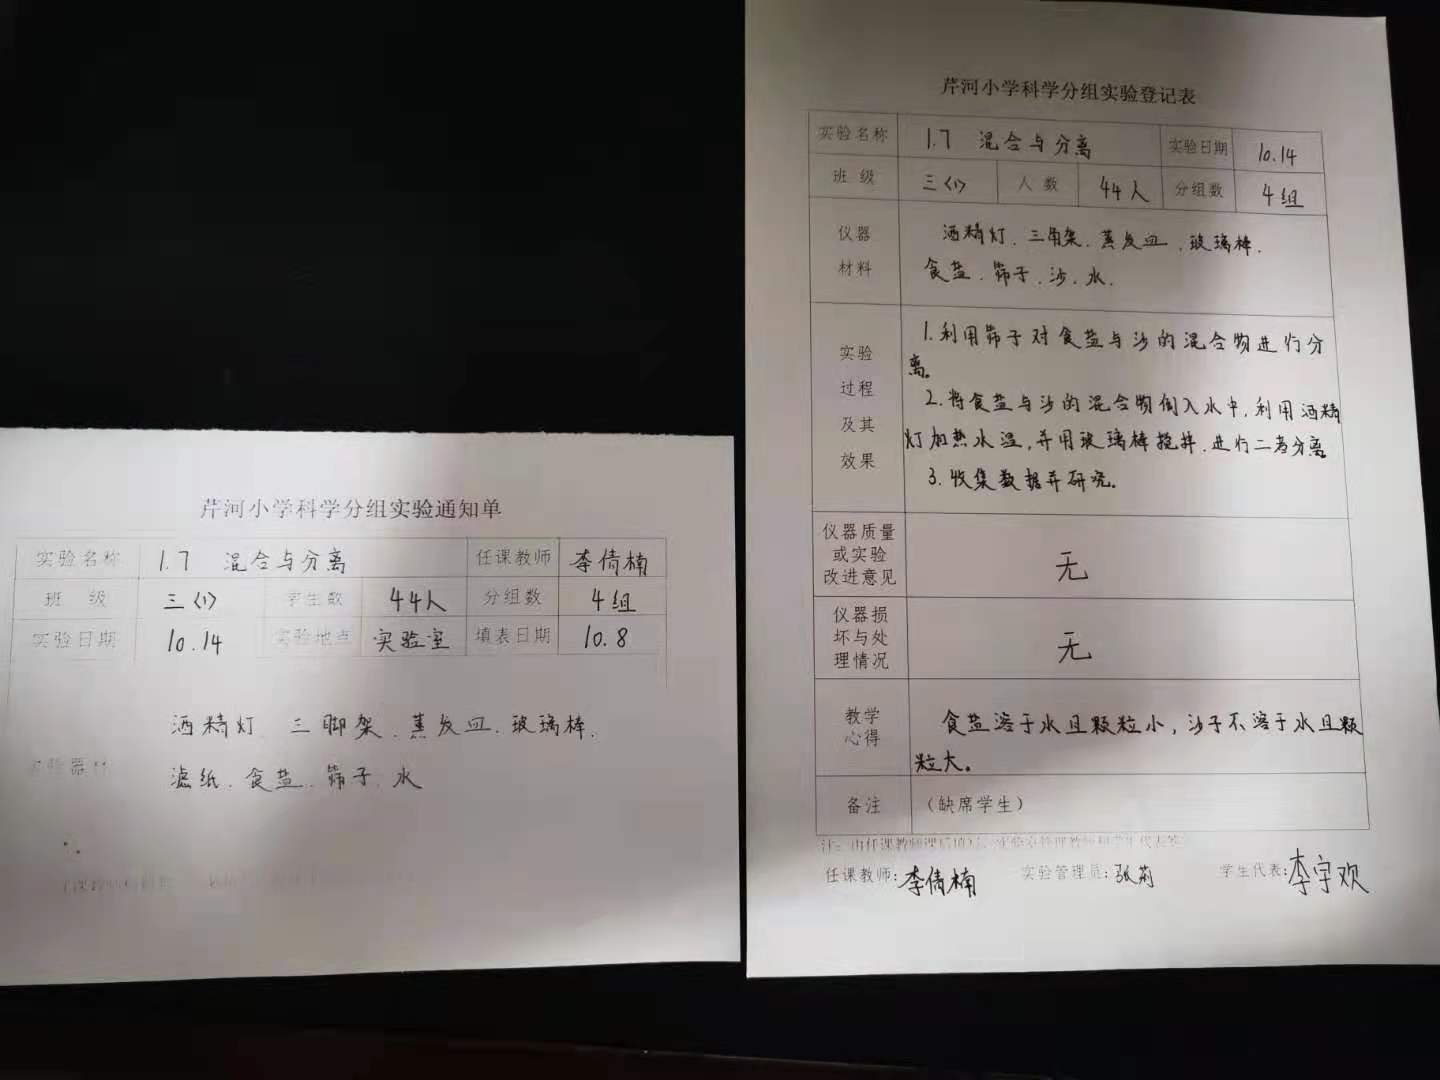 芹河小学科学分组实验通知单
实验名称 1.7 混合与分离 任课教师 李倩楠
班 级 三<1> 学生数 44人 分组数 4组
实验日期 10.14 实验地点 实验室 填表日期 10.8
酒精灯 三脚架、蒸发皿、玻璃棒、
实验器材
滤纸、食盐、筛子、水
芹河小学科学分组实验登记表
实验名称 1.7 混合与分离 实验日期 10.14
班 级 三<1> 人 数 44人 分组数 4组
仪器 酒精灯、三角架、蒸发皿、玻璃棒、
材料 食盐、筛子、沙、水、
1.利用筛子对食盐与沙的混合物进行分
离。
2.将食盐与沙的混合物倒入水中,利用酒精
灯加热水温,并用玻璃棒搅拌、进行二者分离
3.收集数据并研究。
实验
过程
及其
效果
仪器质量
或实验
改进意见
无
仪器损
坏与处
理情况
无
教学
心得
食盐溶于水且颗粒小,沙子不溶于水且颗
粒大。
备注 (缺席学生)
注:由任课教师课后填写
任课教师:李倩楠 实验管理员:张莉 学生代表:李宇欢